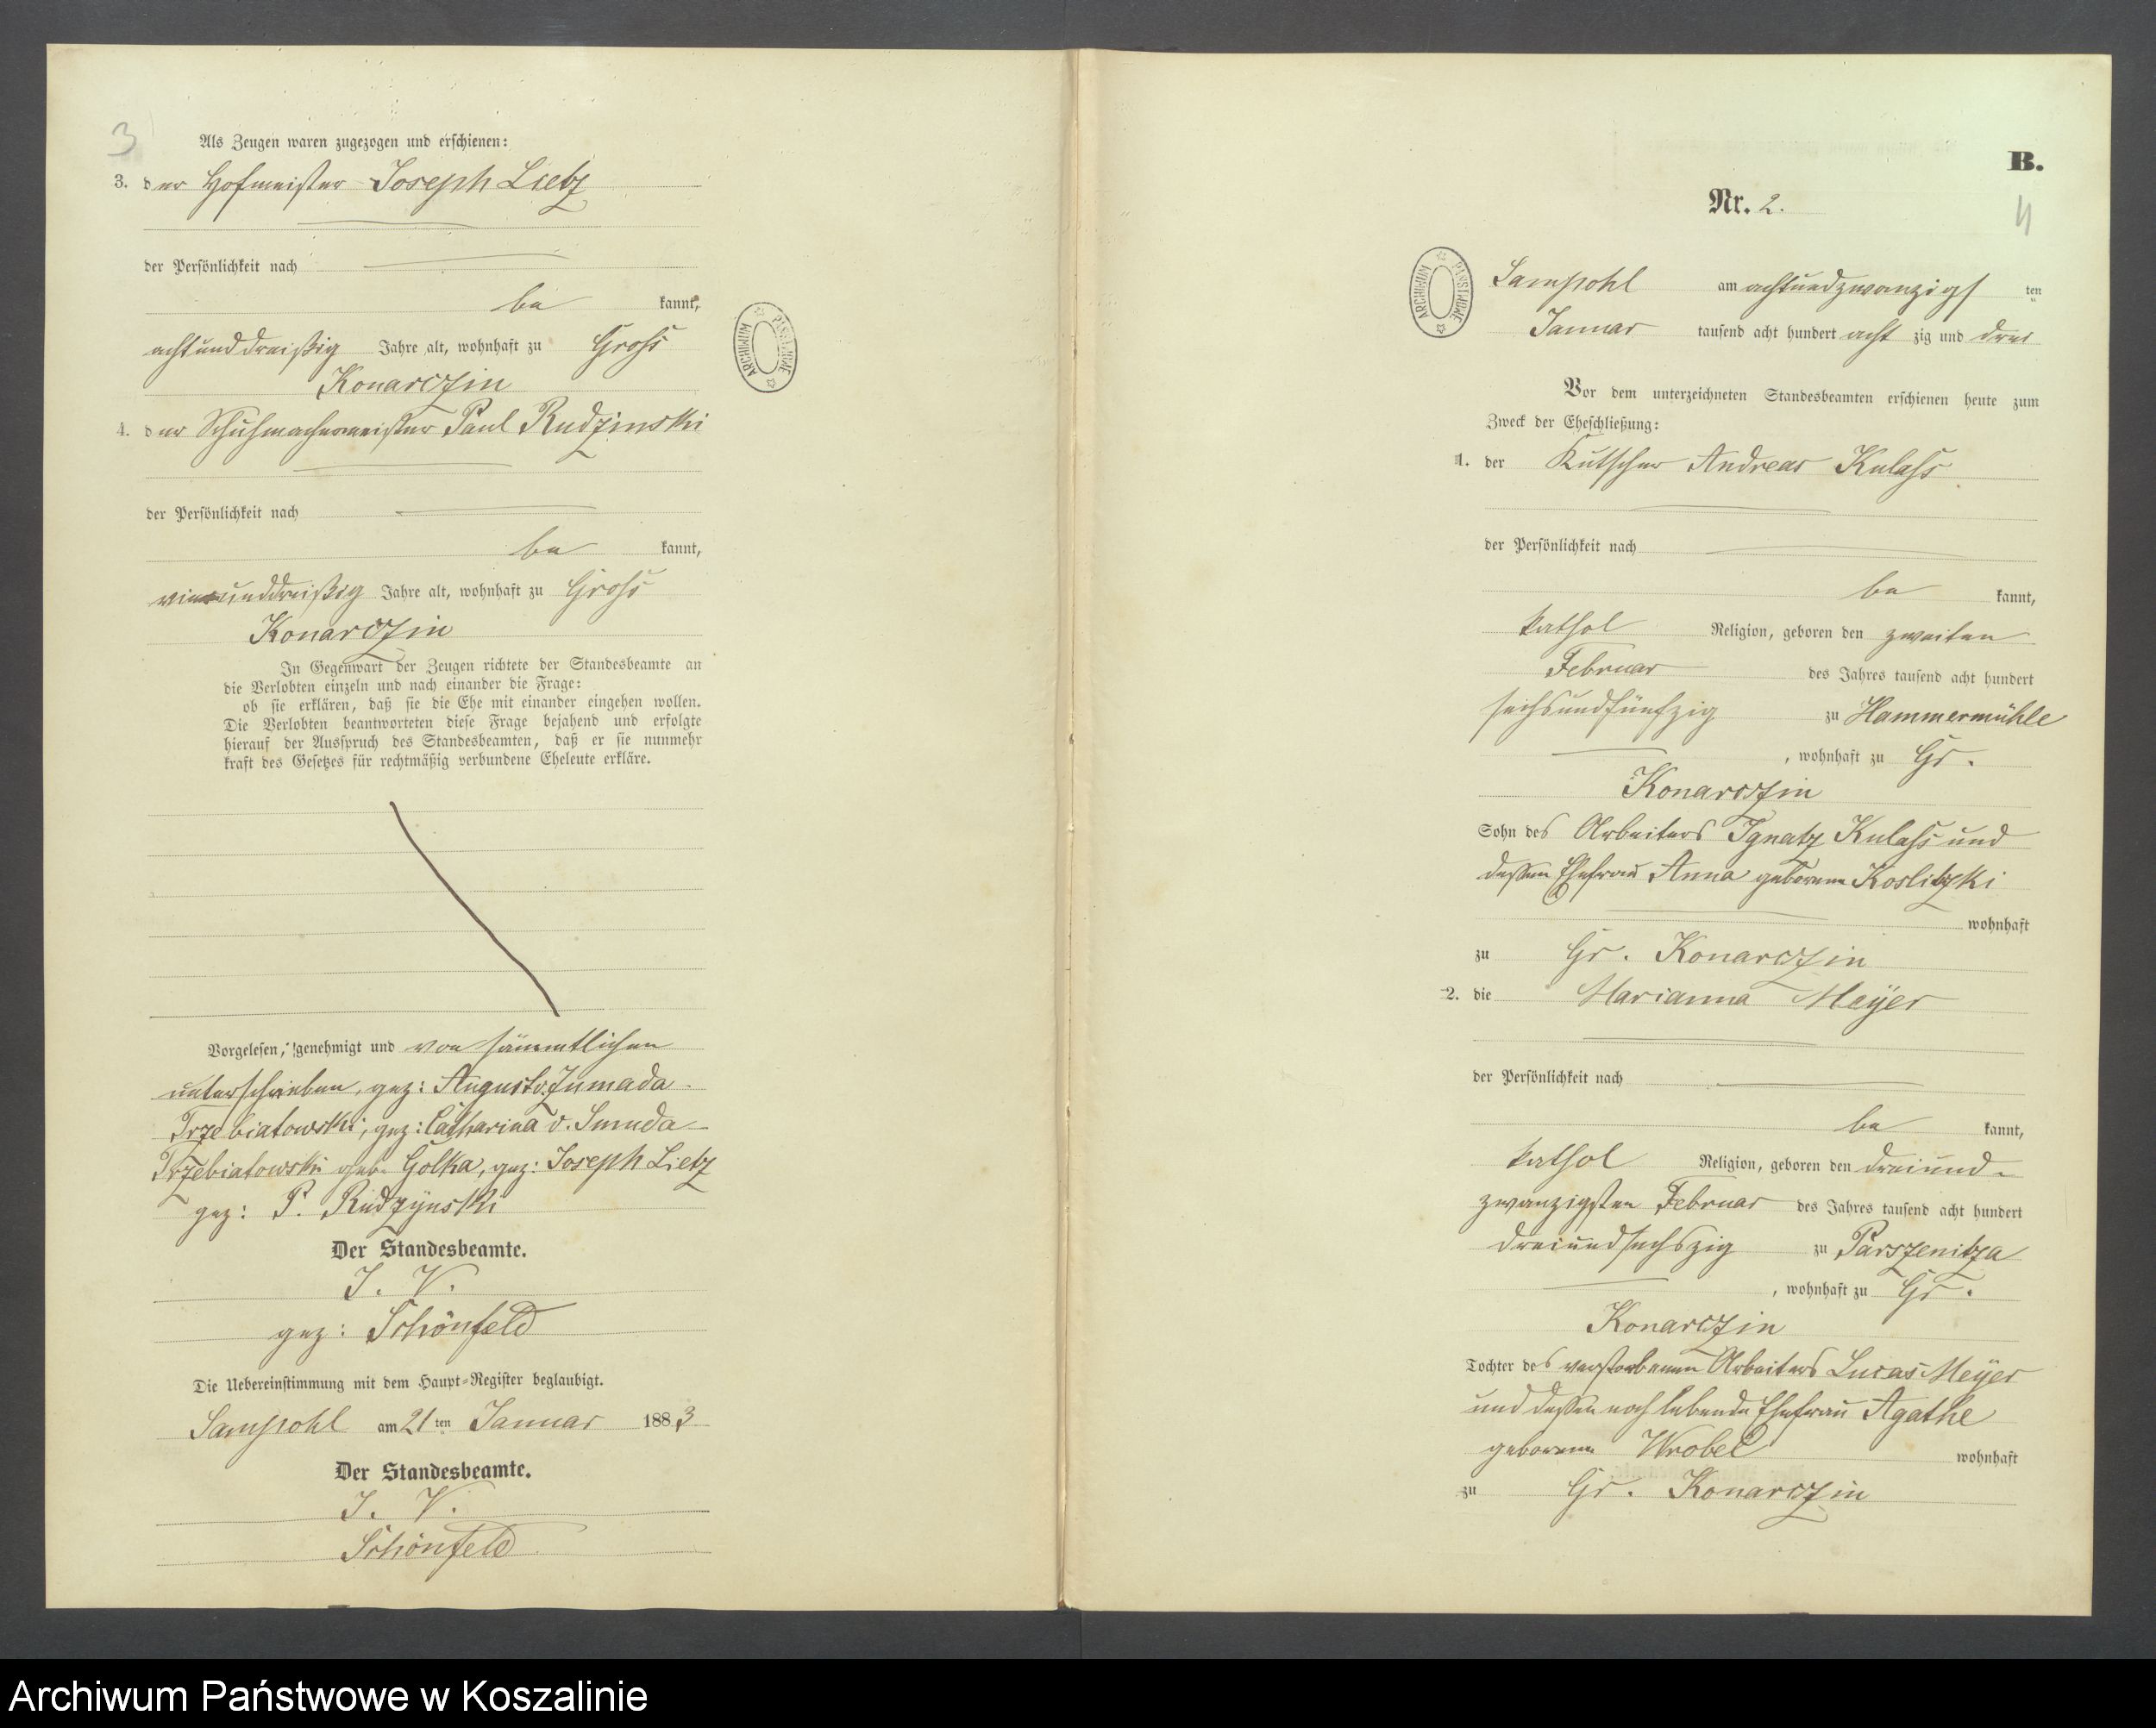 3
Als Zeugen waren zugezogen und erschienen:
3. der Hofmeister Joseph Lietz
der Persönlichkeit nach
be kannt,
achtunddreißig Jahre alt, wohnhaft zu Gross
Konarczin
4. der Schuhmachermeister Paul Rudzinski
der Persönlichkeit nach
be kannt,
vierunddreißig Jahre alt, wohnhaft zu Gross
Konarczin
In Gegenwart der Zeugen richtete der Standesbeamte an
die Verlobten einzeln und nach einander die Frage:
ob sie erklären, daß sie die Ehe mit einander eingehen wollen.
Die Verlobten beantworteten diese Frage bejahend und erfolgte
hierauf der Ausspruch des Standesbeamten, daß er sie nunmehr
kraft des Gesetzes für rechtmäßig verbundene Eheleute erkläre.
Vorgelesen, genehmigt und von sämmtlichen
unterschrieben, gez: August v. Zmuda-
Trzebiatowski, gez: Catharina v. Smuda-
Trzebiatowski geb. Golka, gez: Joseph Lietz
gez: P. Rudzynski
Der Standesbeamte.
I. V.
gez: Schönfeld
Die Uebereinstimmung mit dem Haupt-Register beglaubigt.
Sampohl am 21 ten Januar 1883
Der Standesbeamte.
I. V.
Schönfeld
ARCHIWUM PAŃSTWOWE
B.
Nr. 2.
4
ARCHIWUM PAŃSTWOWE
Sampohl am achtundzwanzigs ten
Januar tausend acht hundert acht zig und drei
Vor dem unterzeichneten Standesbeamten erschienen heute zum
Zweck der Eheschließung:
1. der Kutscher Andreas Kulass
der Persönlichkeit nach
be kannt,
kathol Religion, geboren den zweiten
Februar des Jahres tausend acht hundert
sechsundfünfzig zu Hammermühle
, wohnhaft zu Gr.
Konarczin
Sohn des Arbeiters Ignatz Kulass und
dessen Ehefrau Anna geborene Koslitzki
wohnhaft
zu Gr. Konarczin
2. die Marianna Meÿer
der Persönlichkeit nach
be kannt,
kathol Religion, geboren den dreiund-
zwanzigsten Februar des Jahres tausend acht hundert
dreiundsechszig zu Parszenitza
, wohnhaft zu Gr.
Konarczin
Tochter des verstorbenen Arbeiters Lucas Meÿer
und dessen noch lebende Ehefrau Agathe
geborene Wrobel wohnhaft
zu Gr. Konarczin
Archiwum Państwowe w Koszalinie